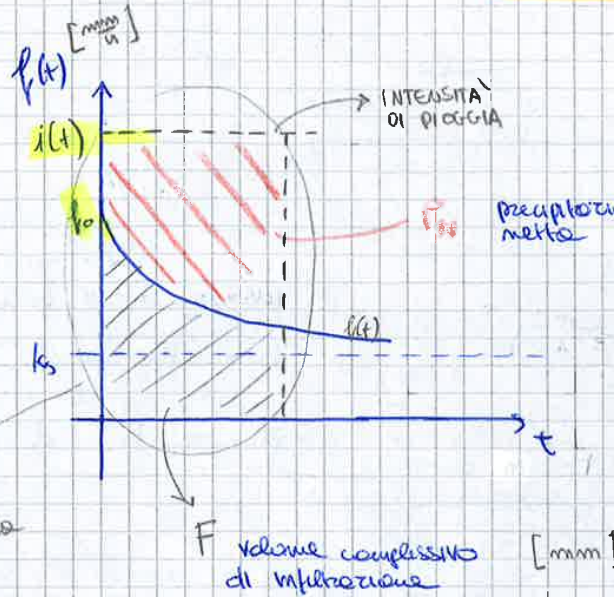 [mm/h]
f(t)
INTENSITA'
DI PIOGGIA
i(t)
f₀
PN
netta
f(t)
ks
t
F volume complessivo
di infiltrazione
[mm]